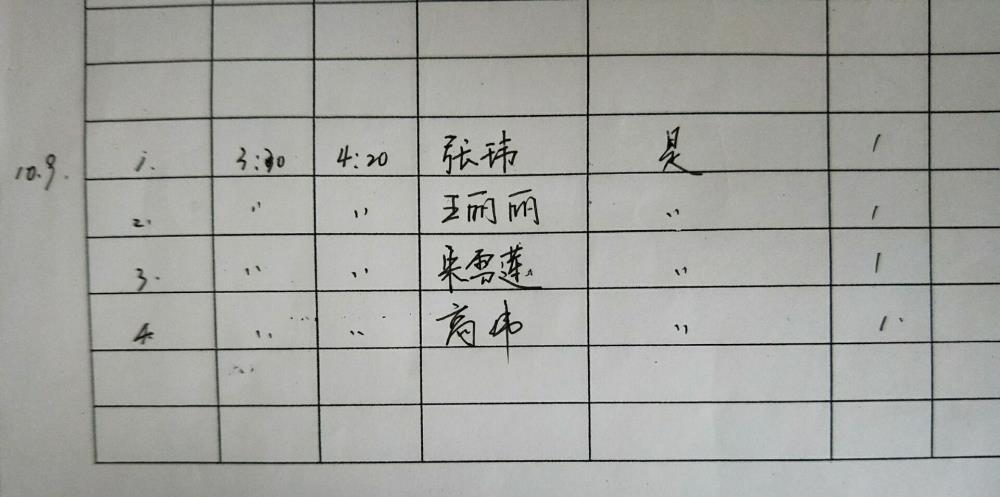 10.9. 1. 3:30 4:20 张玮 是 1
2. " " 王丽丽 " 1
3. " " 宋雪莲 " 1
4. " " 高伟 " 1.
"